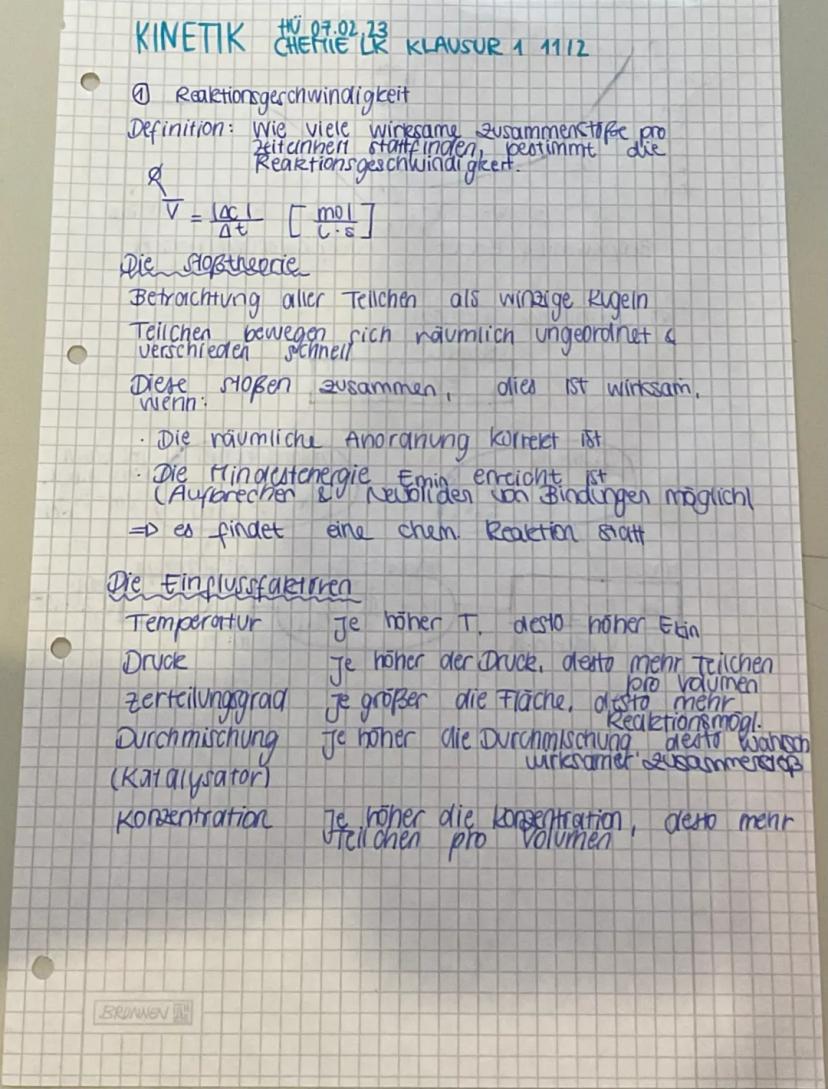 KINETIK HÜ 07.02.23
CHEMIE LK KLAUSUR 1 11/2
① Reaktionsgeschwindigkeit
Definition: Wie viele wirksame Zusammenstöße pro
Zeiteinheit stattfinden, bestimmt die
Reaktionsgeschwindigkeit.
v̅ = |Δc| / Δt [mol / L·s]
Die Stoßtheorie
Betrachtung aller Teilchen als winzige Kugeln
Teilchen bewegen sich räumlich ungeordnet &
verschieden schnell
Diese stoßen zusammen, dies ist wirksam,
wenn:
· Die räumliche Anordnung korrekt ist
· Die Mindestenergie Emin erreicht ist
(Aufbrechen & Neubilden von Bindungen möglich)
=> es findet eine chem. Reaktion statt
Die Einflussfaktoren
Temperatur Je höher T, desto höher Ekin
Druck Je höher der Druck, desto mehr Teilchen
pro Volumen
Zerteilungsgrad Je größer die Fläche, desto mehr
Reaktionsmögl.
Durchmischung Je höher die Durchmischung, desto wahrsch
wirksamer Zusammenstoß
(Katalysator)
Konzentration Je höher die Konzentration, desto mehr
Teilchen pro Volumen
BRUNNEN